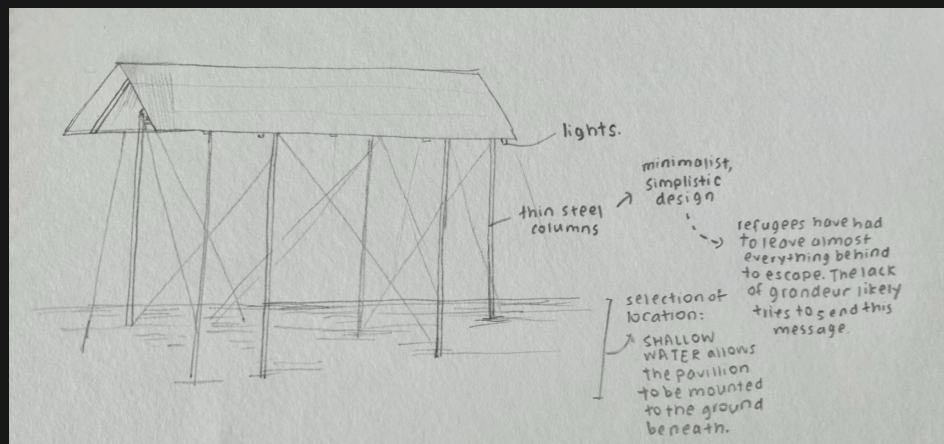 lights.
thin steel
columns
minimalist,
simplistic
design
refugees have had
to leave almost
everything behind
to escape. The lack
of grandeur likely
tries to send this
message.
selection of
location:
SHALLOW
WATER allows
the pavillion
to be mounted
to the ground
beneath.